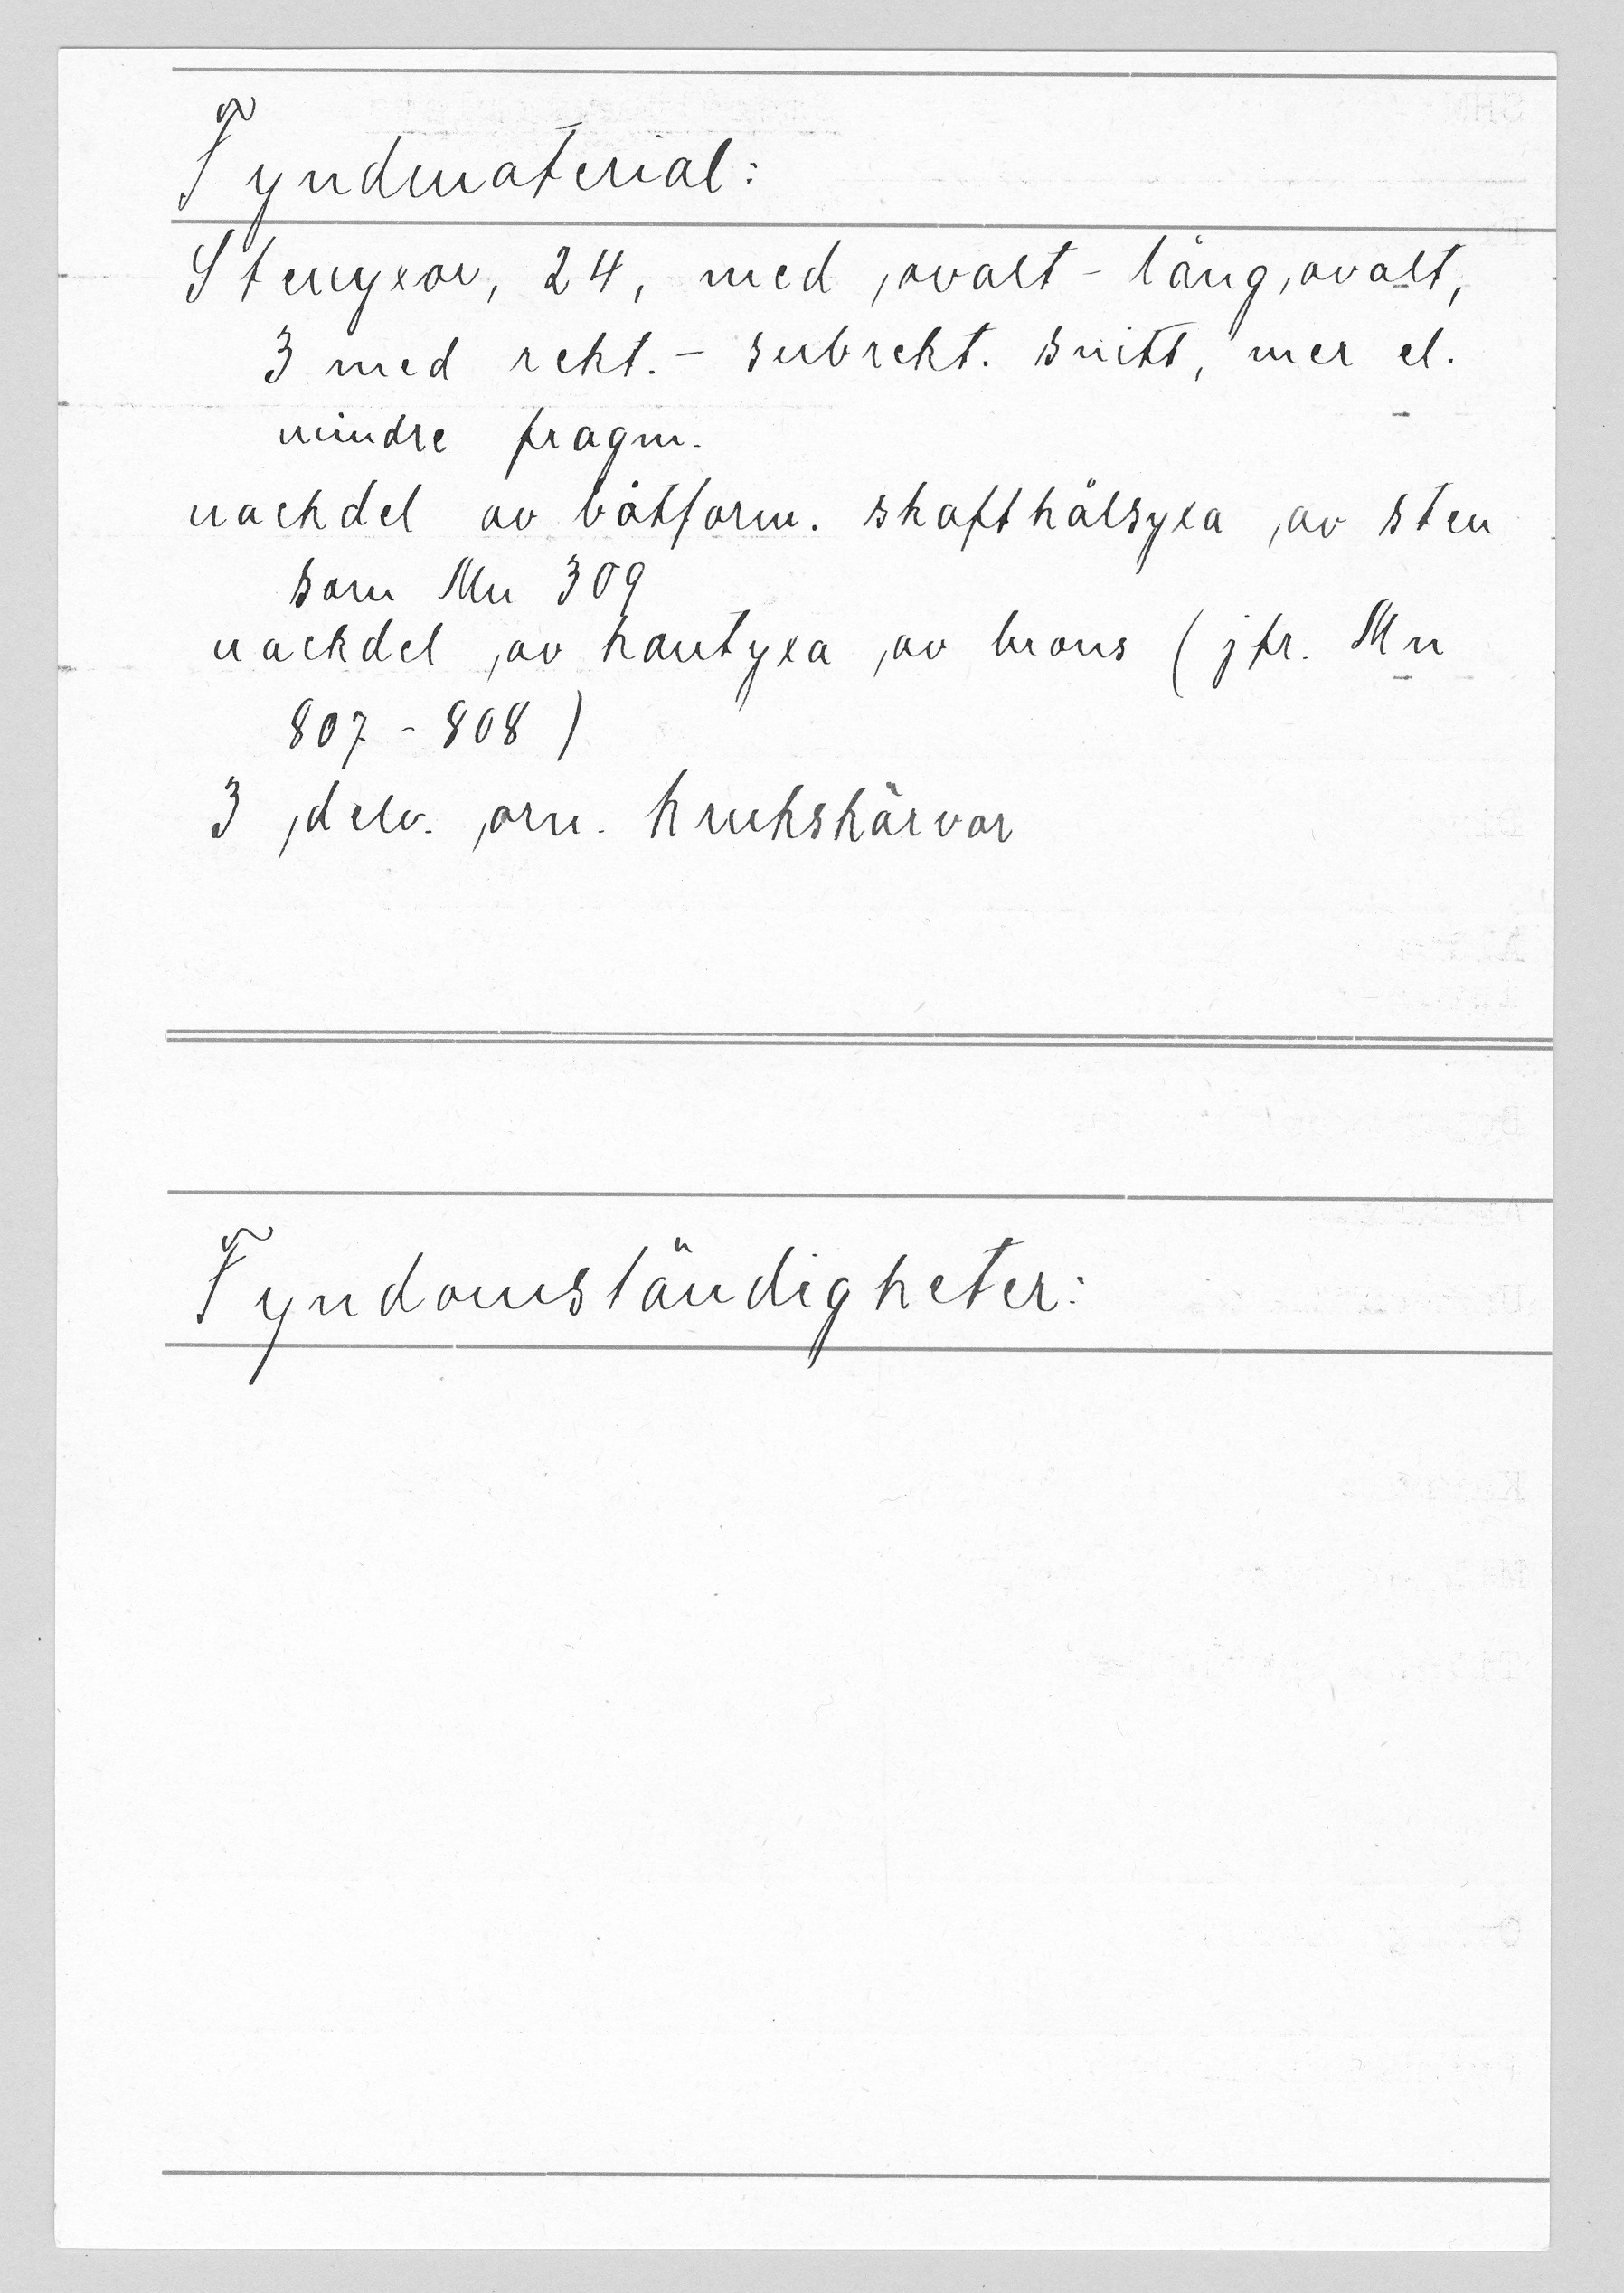 Fyndmaterial:
Stenyxor, 24, med ovalt - långovalt,
3 med rekt. - subrekt. snitt, mer el.
mindre fragm.
nackdel av båtform. skafthålsyxa av sten
som Mn 309
nackdel av kantyxa av brons (jfr. Mn
807 - 808)
3 delv. orn. krukskärvor
Fyndomständigheter: